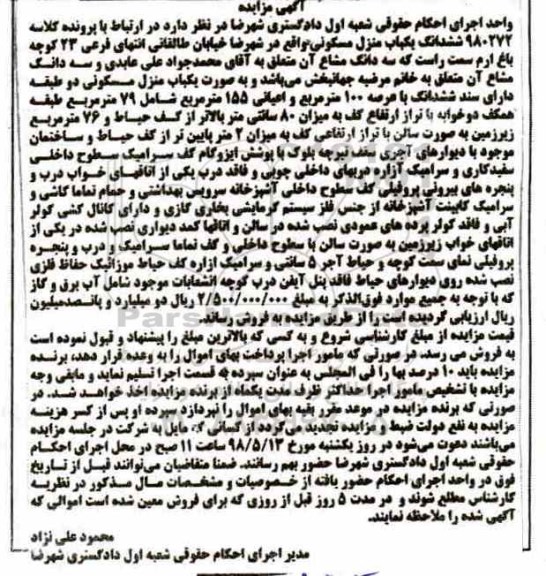 آگهی مزایده
واحد اجرای احکام حقوقی شعبه اول دادگستری شهرضا در نظر دارد در ارتباط با پرونده کلاسه
۹۸۰۲۷۲ ششدانگ یکباب منزل مسکونی واقع در شهرضا خیابان طالقانی انتهای فرعی ۲۳ کوچه
باغ ارم سمت راست که سه دانگ مشاع آن متعلق به آقای محمدجواد علی عابدی و سه دانگ
مشاع آن متعلق به خانم مرضیه جهانبخش می‌باشد و به صورت یکباب منزل مسکونی دو طبقه
دارای سند ششدانگ با عرصه ۱۰۰ مترمربع و اعیانی ۱۵۵ مترمربع شامل ۷۹ مترمربع طبقه
همکف دوخوابه با تراز ارتفاع کف به میزان ۸۰ سانتی متر بالاتر از کف حیاط و ۷۶ مترمربع
زیرزمین به صورت سالن با تراز ارتفاعی کف به میزان ۲ متر پایین تر از کف حیاط و ساختمان
موجود با دیوارهای آجری سقف تیرچه بلوک با پوشش ایزوگام کف سرامیک سطوح داخلی
سفیدکاری و سرامیک ازاره دربهای داخلی چوبی و فاقد درب یکی از اتاقهای خواب درب و
پنجره های بیرونی پروفیلی کف سطوح داخلی آشپزخانه سرویس بهداشتی و حمام تماما کاشی و
سرامیک کابینت آشپزخانه از جنس فلز سیستم گرمایشی بخاری گازی و دارای کانال کشی کولر
آبی و فاقد کولر پرده های عمودی نصب شده در سالن و اتاقها کمد دیواری نصب شده در یکی از
اتاقهای خواب زیرزمین به صورت سالن با سطوح داخلی و کف تماما سرامیک و درب و پنجره
پروفیلی نمای سمت کوچه و حیاط آجر ۵ سانتی و سرامیک ازاره کف حیاط موزائیک حفاظ فلزی
نصب شده روی دیوارهای حیاط فاقد پنل آیفن درب کوچه انشعابات موجود شامل آب برق و گاز
که با توجه به جمیع موارد فوق‌الذکر به مبلغ ۲/۵۰۰/۰۰۰/۰۰۰ ریال دو میلیارد و پانصدمیلیون
ریال ارزیابی گردیده است را از طریق مزایده به فروش رساند.
قیمت مزایده از مبلغ کارشناسی شروع و به کسی که بالاترین مبلغ را پیشنهاد و قبول نموده است
به فروش می رسد. در صورتی که مامور اجرا پرداخت بهای اموال را به وعده قرار دهد، برنده
مزایده باید ۱۰ درصد بها را فی المجلس به عنوان سپرده به قسمت اجرا تسلیم نماید و مابقی وجه
مزایده با تشخیص مامور اجرا حداکثر ظرف مدت یکماه از برنده مزایده اخذ خواهد شد. در
صورتی که برنده مزایده در موعد مقرر بقیه بهای اموال را نپردازد سپرده او پس از کسر هزینه
مزایده به نفع دولت ضبط و مزایده تجدید می‌گردد از کسانی که مایل به شرکت در جلسه مزایده
می‌باشند دعوت می‌شود در روز یکشنبه مورخ ۹۸/۵/۱۳ ساعت ۱۱ صبح در محل اجرای احکام
حقوقی شعبه اول دادگستری شهرضا حضور بهم رسانند. ضمنا متقاضیان می‌توانند قبل از تاریخ
فوق در واحد اجرای احکام حضور یافته از خصوصیات و مشخصات مال مذکور در نظریه
کارشناس مطلع شوند و در مدت ۵ روز قبل از روزی که برای فروش معین شده است اموالی که
آگهی شده را ملاحظه نمایند.
محمود علی نژاد
مدیر اجرای احکام حقوقی شعبه اول دادگستری شهرضا